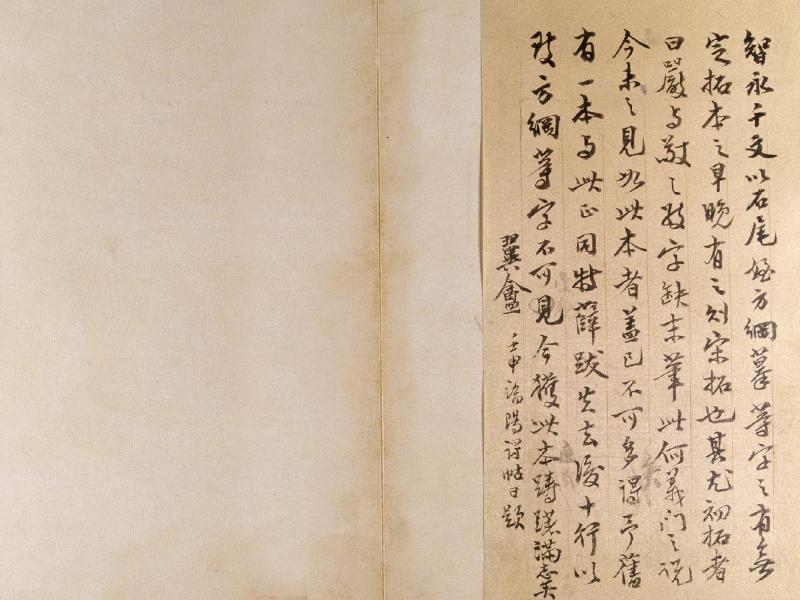 智永千文以石尾絃方綱摹等字之有無
定拓本之早晚有之則宋拓也其尤初拓者
曰嚴与敬之敬字缺末筆此何義門之說
今未之見如此本者蓋已不可多得予舊
有一本与此正同特薛跋失去後十行以
致方綱等字不可見今獲此本躊躇滿志矣
翼盦 壬申洛陽得帖日題